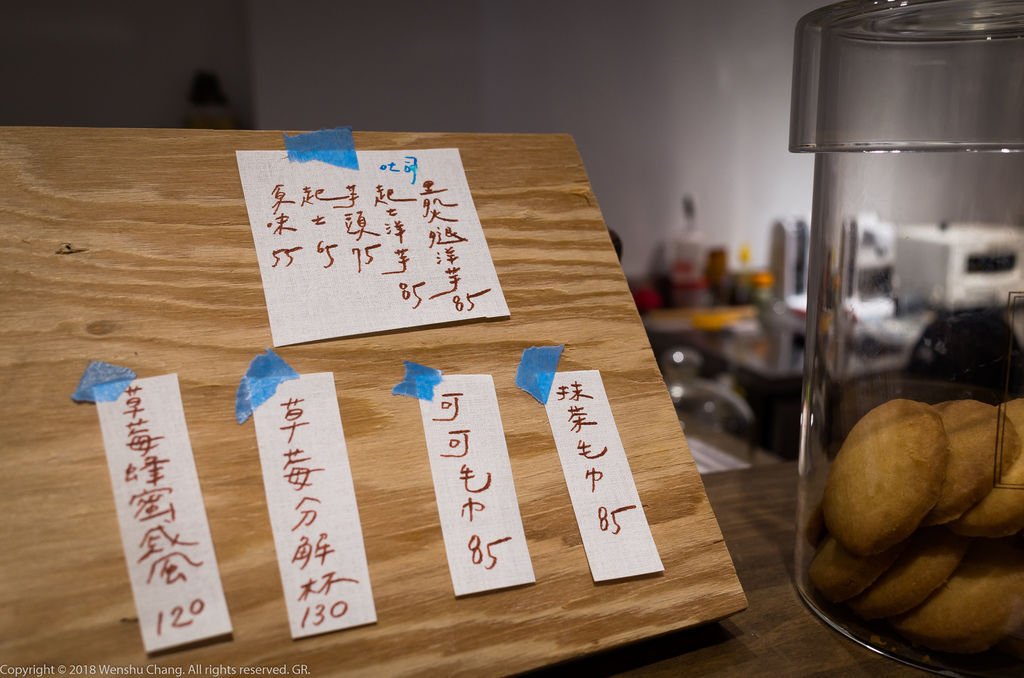 吐司
原味 55
起士 65
芋頭 75
起士洋芋 85
腿洋芋 85
草莓蜂蜜戚風 120
草莓分解杯 130
可可毛巾 85
抹茶毛巾 85
Copyright © 2018 Wenshu Chang. All rights reserved. GR.